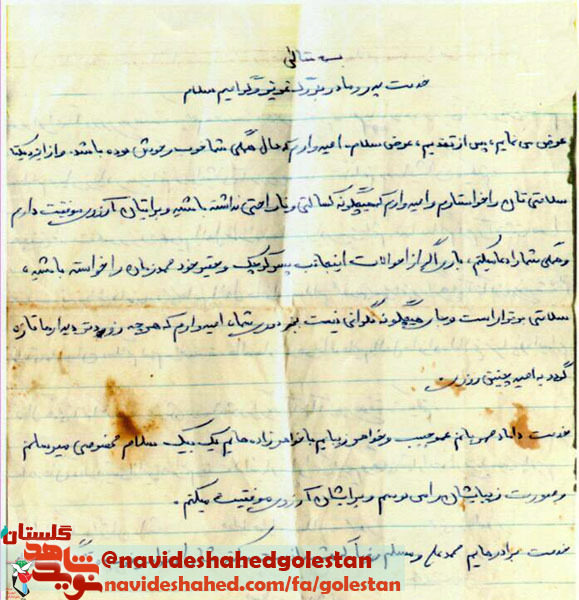 بسمه تعالی
خدمت پدر و مادر بزرگ عزیز و گرامیم سلام
عرض می نمایم، پس از تقدیم، عرض سلام امیدوارم که حال همگی شما خوب و خوش بوده باشد. و از ایزد یکتا
سلامتی تان را خواستارم و امیدوارم که هیچگونه کسالتی و ناراحتی نداشته باشید و برایتان آرزوی موفقیت دارم
و همگی شما را دعا میکنم، باری اگر از احوالات اینجانب پسر کوچک و حقیر خود محمد زمان را خواسته باشید،
سلامتی برقرار است و جای هیچگونه نگرانی نیست بجز دوری شما، امیدوارم که هر چه زودتر دیدارها تازه
گردد به امید چنین روزی.
خدمت داماد مهربانم عمو حبیب و خواهر زیبایم با خواهر زاده هایم یک بیک سلام مخصوصی میرسانم
و صورت زیبایشان را می بوسم و برایشان آرزوی موفقیت میکنم.
خدمت برادر هایم محمد علی و مسلم
گلستان
نوید شاهد
@navideshahedgolestan
navideshahed.com/fa/golestan